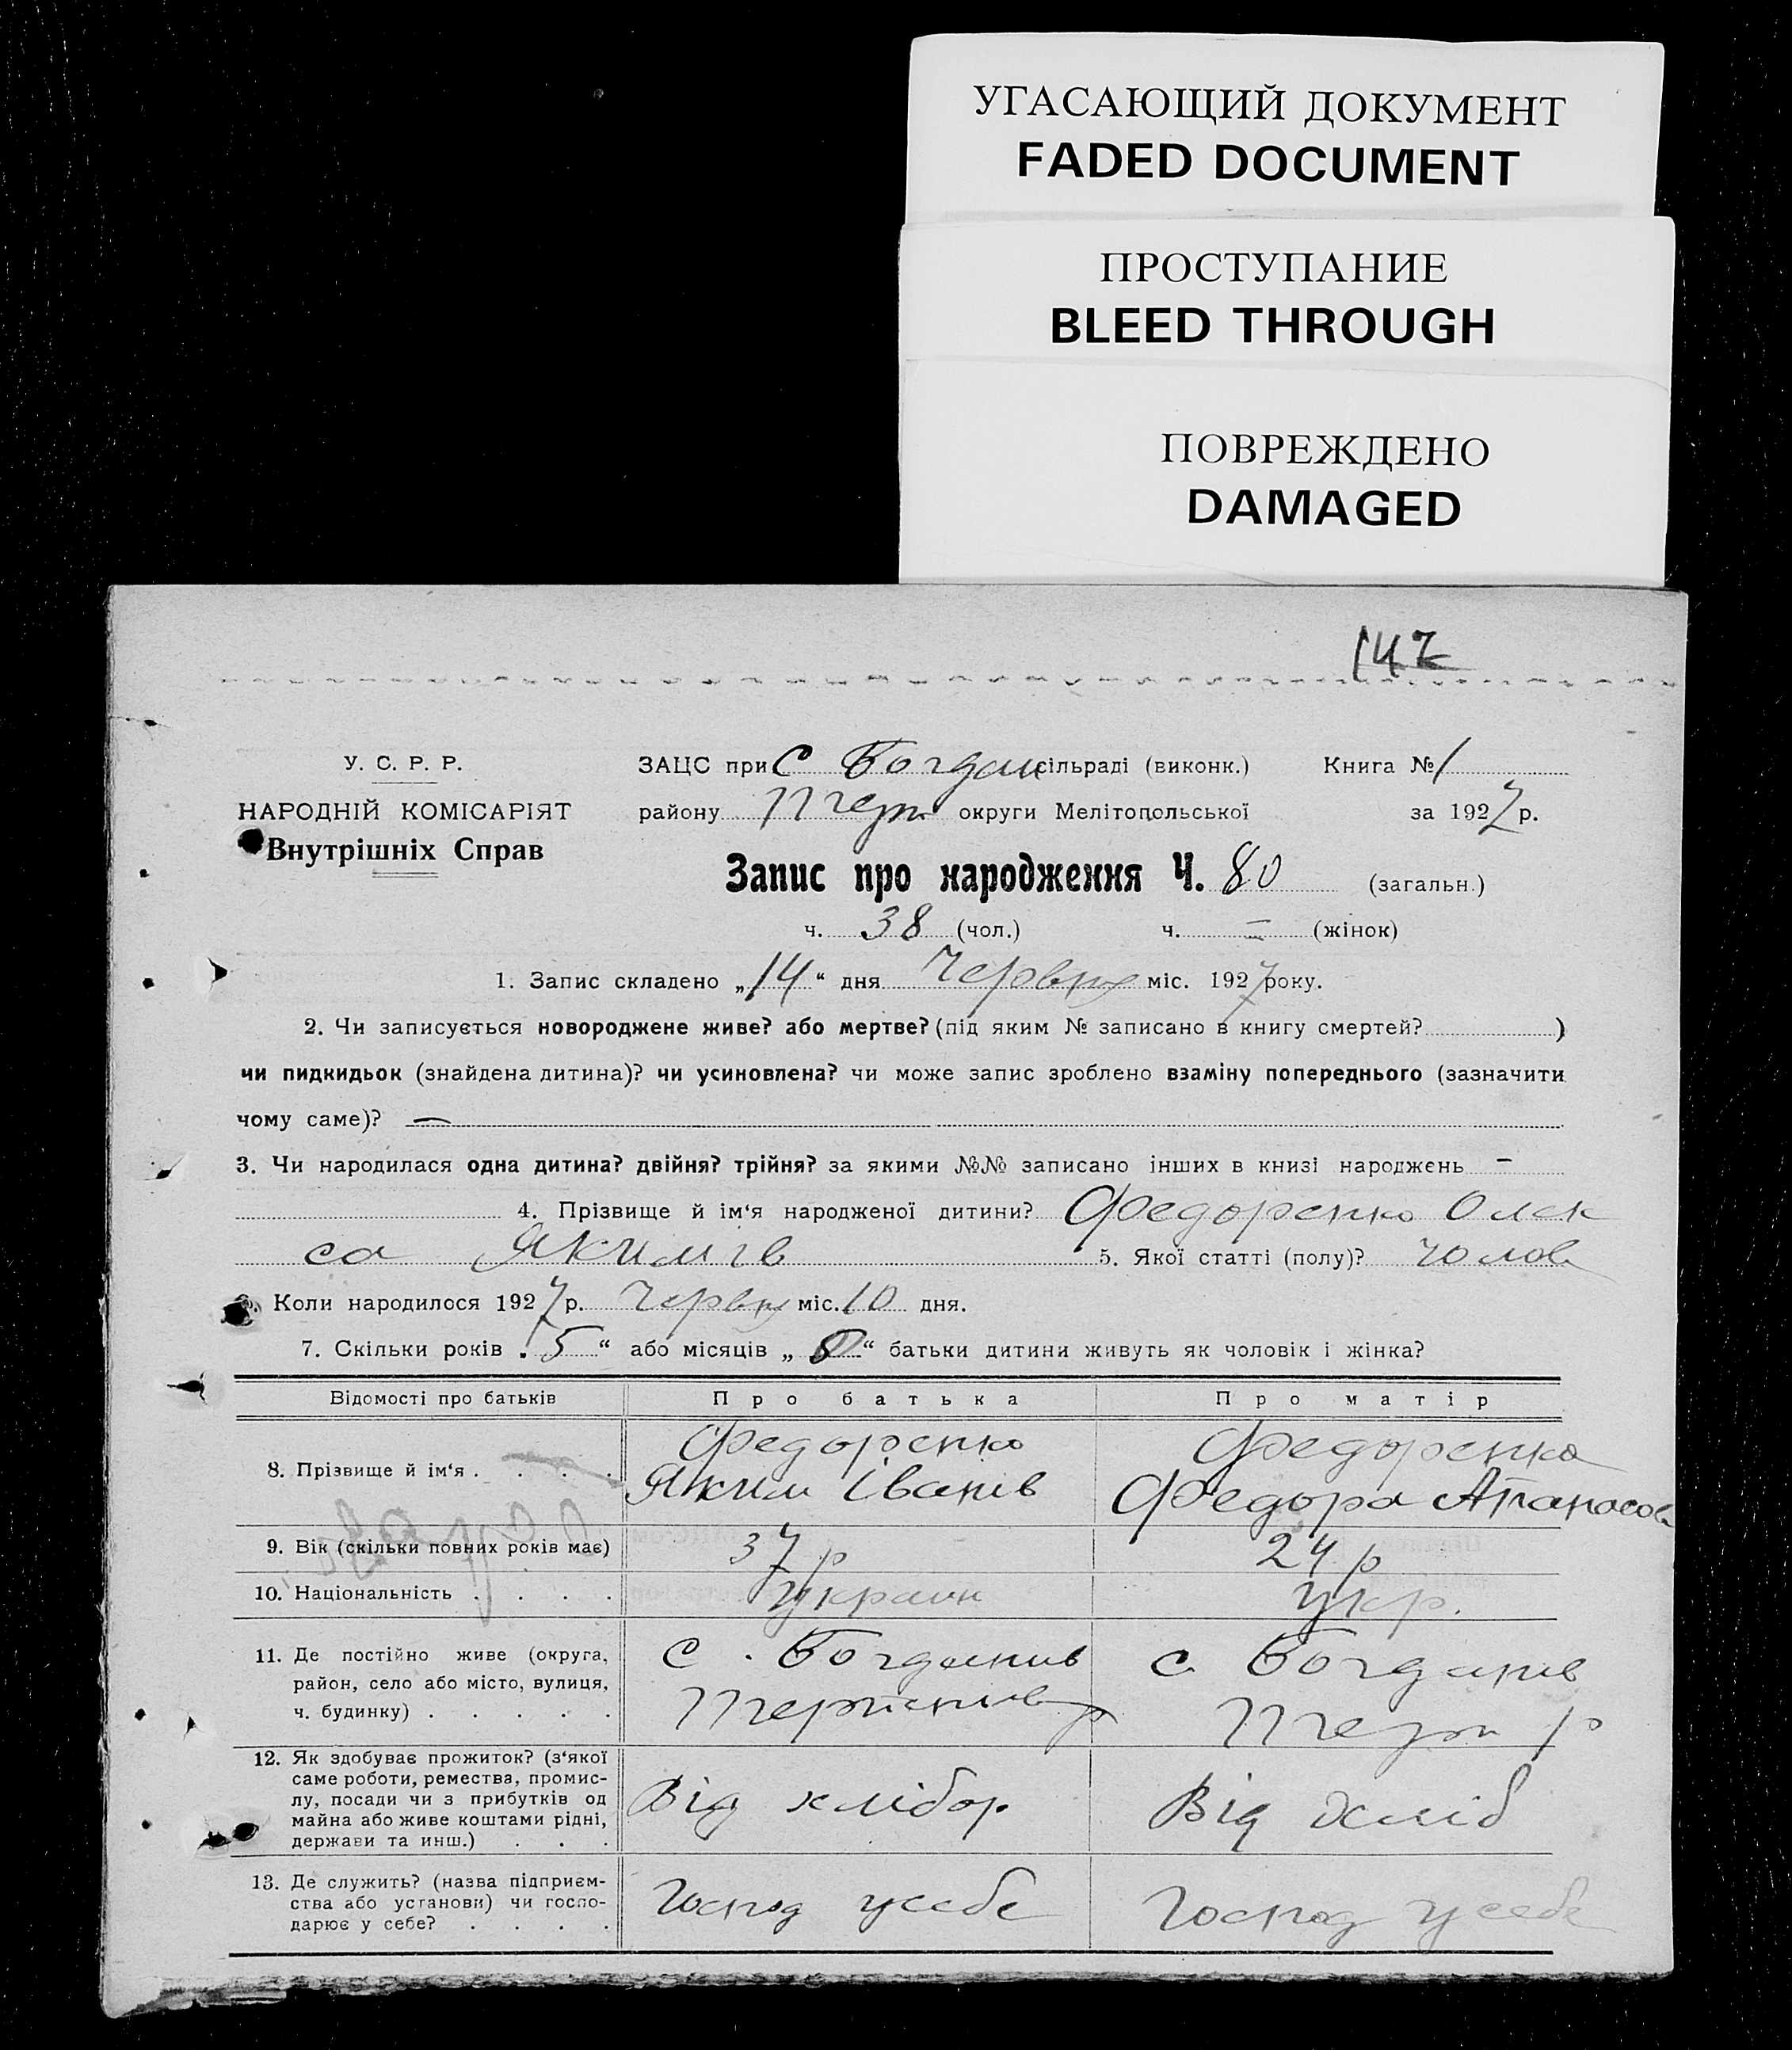 УГАСАЮЩИЙ ДОКУМЕНТ
FADED DOCUMENT
ПРОСТУПАНИЕ
BLEED THROUGH
ПОВРЕЖДЕНО
DAMAGED
147
У. С. Р. Р.
НАРОДНІЙ КОМІСАРІЯТ
Внутрішніх Справ
ЗАЦС при С Богдан сільраді (виконк.) Книга № 1
району округи Мелітопольської за 1927 р.
Запис про народження Ч. 80 (загальн.)
ч. 38 (чол.) ч. — (жінок)
1. Запис складено „14“ дня Червня міс. 1927 року.
2. Чи записується новороджене живе? або мертве? (під яким № записано в книгу смертей? )
чи пидкидьок (знайдена дитина)? чи усиновлена? чи може запис зроблено взаміну попереднього (зазначити
чому саме)? —
3. Чи народилася одна дитина? двійня? трійня? за якими №№ записано інших в книзі народжень —
4. Прізвище й ім‘я народженої дитини? Федоренко Олек
са Якимів 5. Якої статті (полу)? чолов
Коли народилося 1927 р. Червня міс. 10 дня.
7. Скільки років „5“ або місяців „ “ батьки дитини живуть як чоловік і жінка?
Відомості про батьків Про батька Про матір
8. Прізвище й ім‘я . . . .
Федоренко
Яким Іванів
Федоренко
Федора Апанасов
9. Вік (скільки повних років має) 37 р 24 р
10. Національність . . . . украин укр.
11. Де постійно живе (округа,
район, село або місто, вулиця,
ч. будинку) . . . . .
С. Богданив
с. Богданив
12. Як здобуває прожиток? (з‘якої
саме роботи, ремества, промис-
лу, посади чи з прибутків од
майна або живе коштами рідні,
держави та инш.) . . .
Від хлібор.
Від хліб
13. Де служить? (назва підприєм-
ства або установи) чи госпо-
дарює у себе? . . . .
Господ усебе
Господ усебе